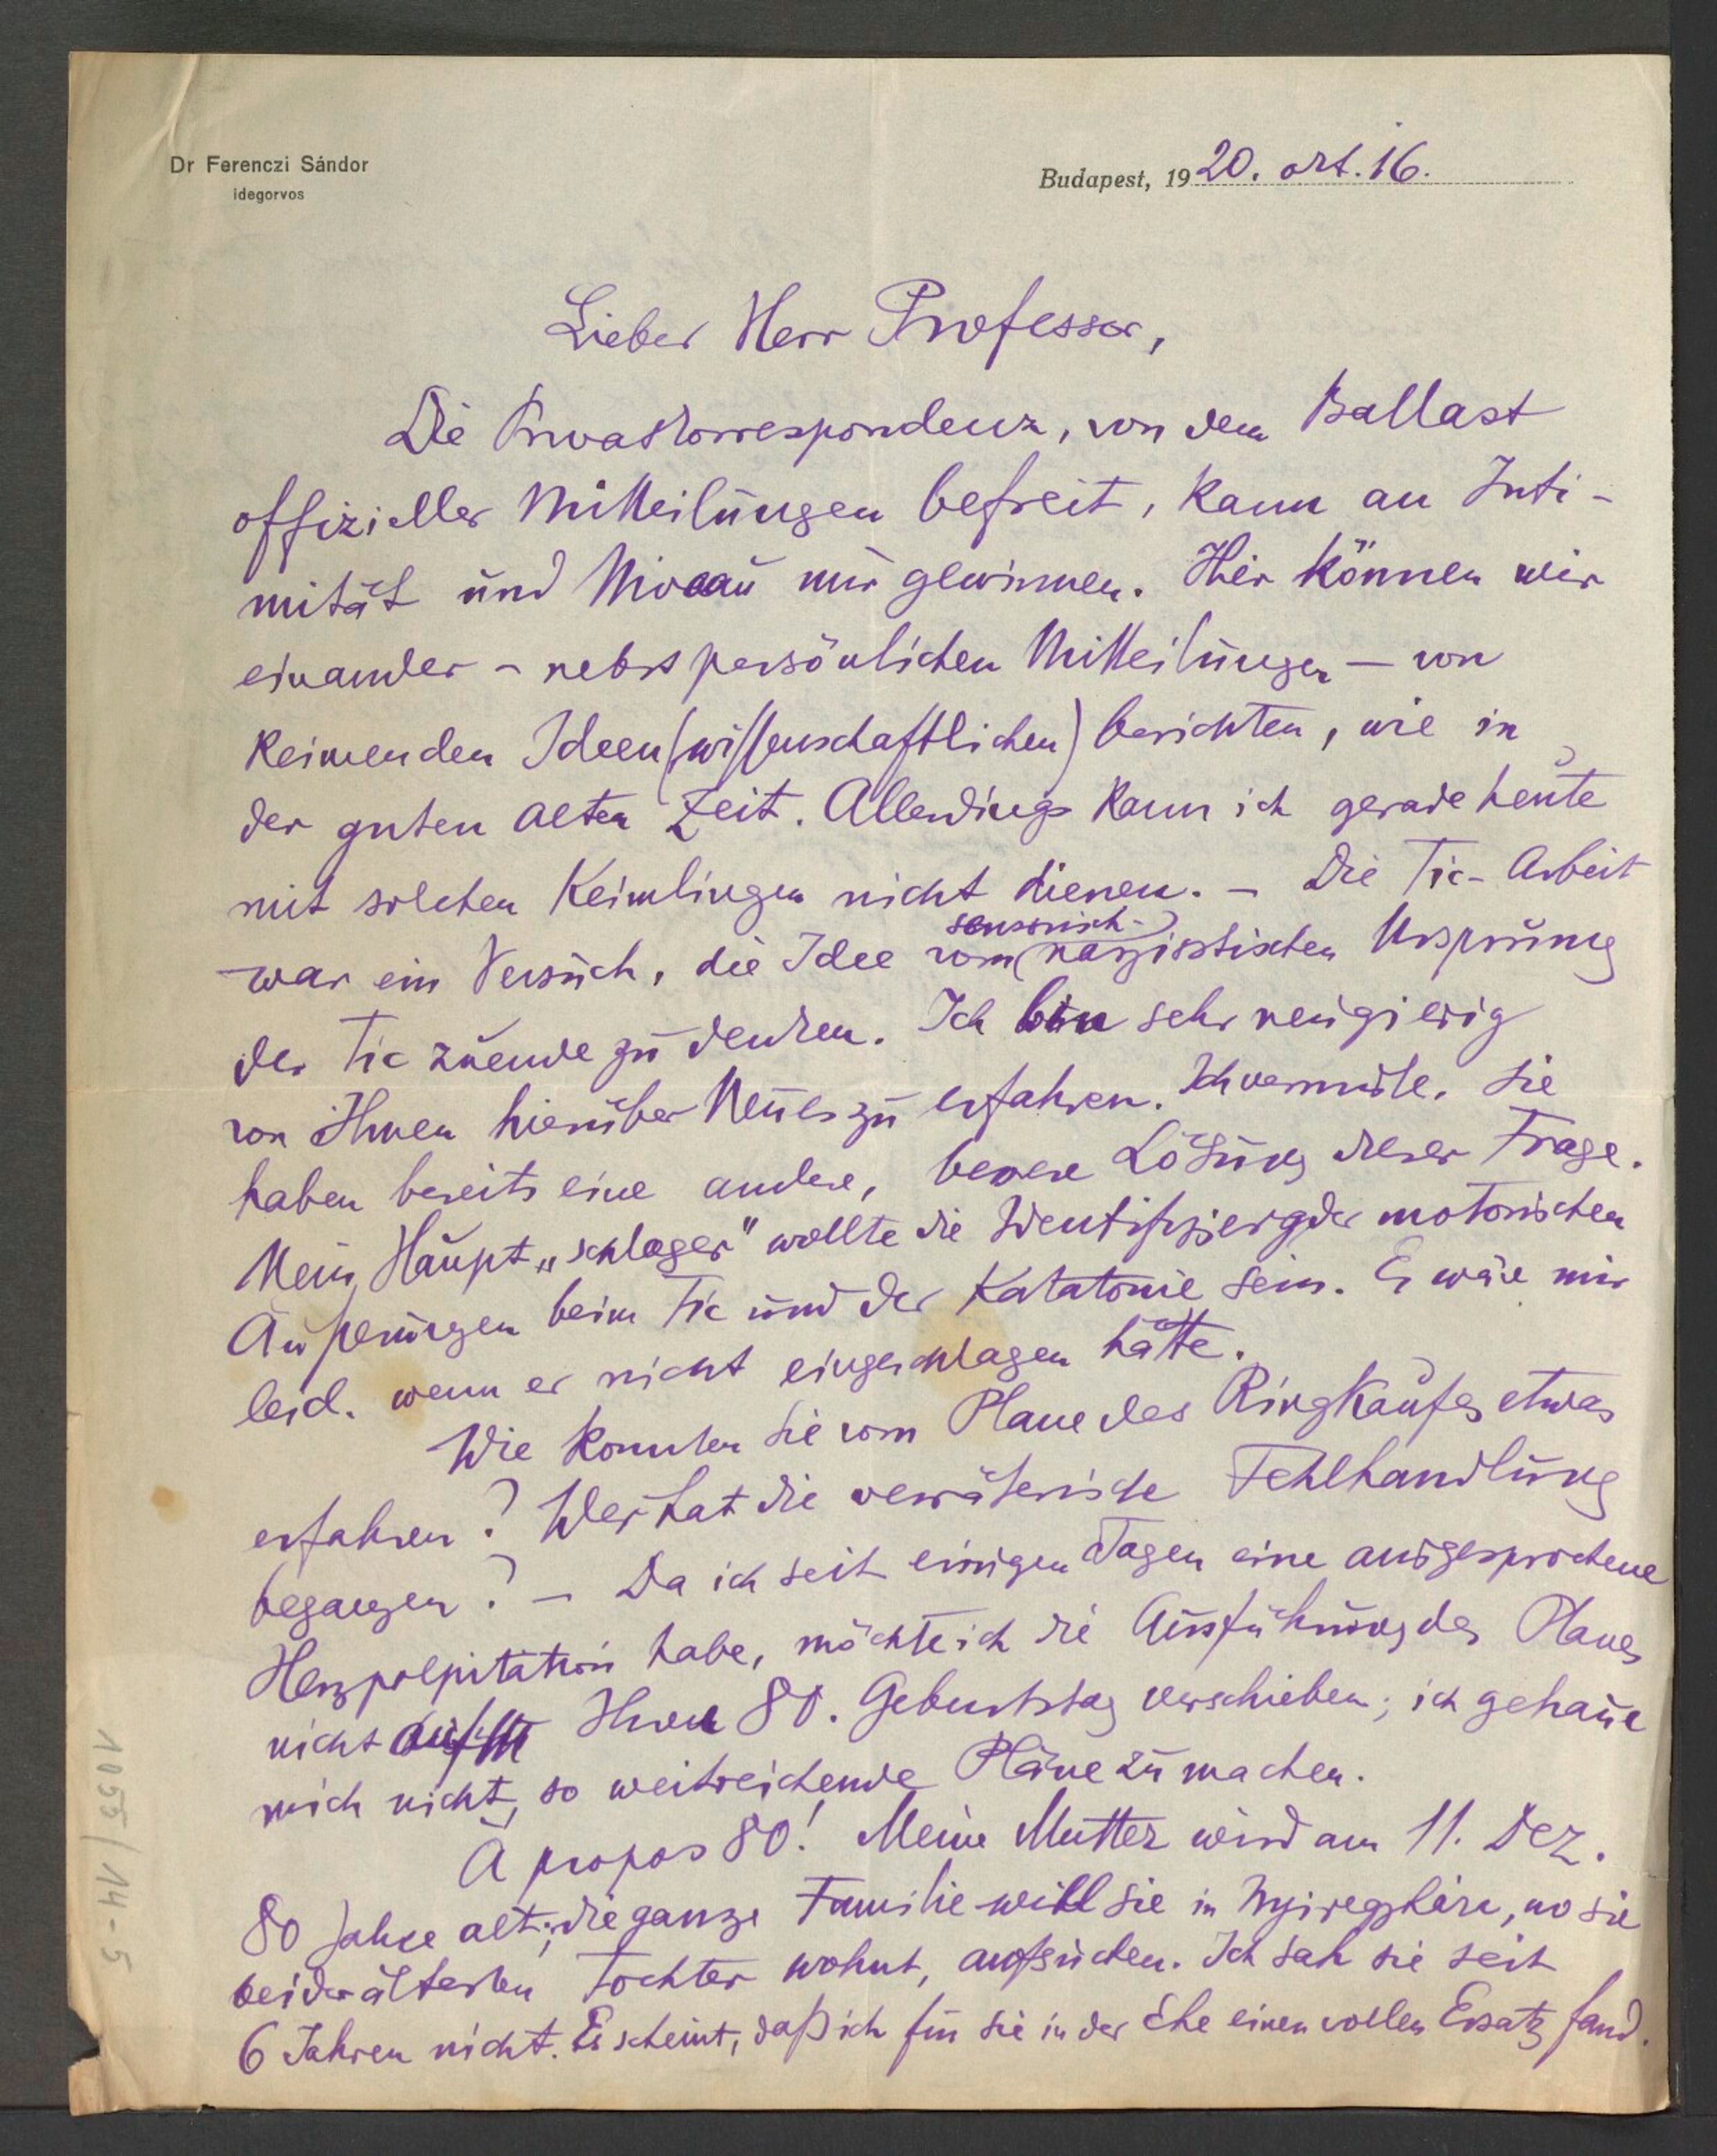 Dr Ferenczi Sándor
idegorvos
Budapest, 1920. okt. 16.
Lieber Herr Professor,
Die Privatkorrespondenz, von dem Ballast
offizieller Mitteilungen befreit, kann an Inti-
mität und Niveau nur gewinnen. Hier können wir
einander - nebst persönlichen Mitteilungen - von
keimenden Ideen (wissenschaftlichen) berichten, wie in
der guten alten Zeit. Allerdings kann ich gerade heute
mit solchen Keimlingen nicht dienen. - Die Tic-Arbeit
sensorisch-
war ein Versuch, die Idee vom narzisstischen Ursprung
der Tic zuende zu denken. Ich bin sehr neugierig
von Ihnen hierüber Neues zu erfahren. Ich vermute, Sie
haben bereits eine andere, bessere Lösung dieser Frage.
Mein Haupt„schlager" wollte die Identifizierg der motorischen
Äußerungen beim Tic und der Katatonie sein. Es wäre mir
leid, wenn er nicht eingeschlagen hätte.
Wie konnten Sie vom Plane des Ringkaufes etwas
erfahren? Wer hat die verräterische Fehlhandlung
begangen? - Da ich seit einigen Tagen eine ausgesprochene
Herzpalpitation habe, möchte ich die Ausführung des Planes
nicht auf Ihren 80. Geburtstag verschieben; ich getraue
mich nicht, so weitreichende Pläne zu machen.
À propos 80! Meine Mutter wird am 11. Dez.
80 Jahre alt; die ganze Familie will sie in Nyiregyháza, wo sie
bei der ältesten Tochter wohnt, aufsuchen. Ich sah sie seit
6 Jahren nicht. Es scheint, daß ich für sie in der Ehe einen vollen Ersatz fand.
1055/14-5